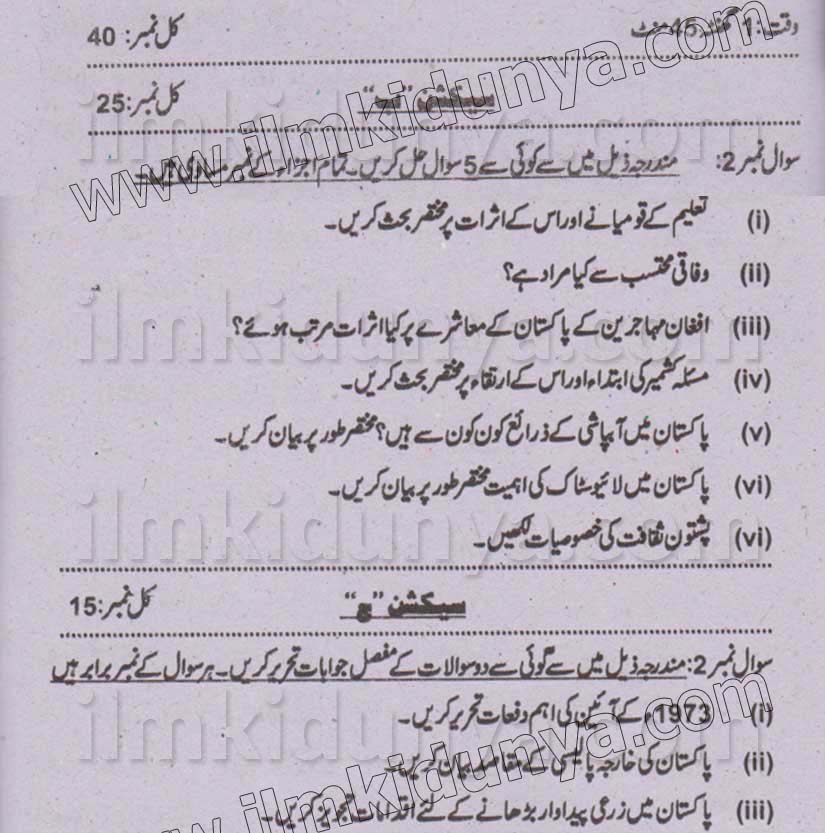 وقت: 1 گھنٹہ 45 منٹ
کل نمبر: 40
سیکشن
کل نمبر: 25
سوال نمبر 2: مندرجہ ذیل میں سے کوئی سے 5 سوال حل کریں۔ تمام اجزاء کے نمبر مساوی ہیں۔
(i) تعلیم کے قومیانے اور اس کے اثرات پر مختصر بحث کریں۔
(ii) وفاقی محتسب سے کیا مراد ہے؟
(iii) افغان مہاجرین کے پاکستان کے معاشرے پر کیا اثرات مرتب ہوئے؟
(iv) مسئلہ کشمیر کی ابتداء اور اس کے ارتقاء پر مختصر بحث کریں۔
(v) پاکستان میں آبپاشی کے ذرائع کون کون سے ہیں؟ مختصر طور پر بیان کریں۔
(vi) پاکستان میں لائیوسٹاک کی اہمیت مختصر طور پر بیان کریں۔
(vi) پشتون ثقافت کی خصوصیات لکھیں۔
سیکشن "ج"
کل نمبر: 15
سوال نمبر 2: مندرجہ ذیل میں سے کوئی سے دو سوالات کے مفصل جوابات تحریر کریں۔ ہر سوال کے نمبر برابر ہیں
(i) 1973ء کے آئین کی اہم دفعات تحریر کریں۔
(ii) پاکستان کی خارجہ پالیسی کے مقاصد بیان کریں۔
(iii) پاکستان میں زرعی پیداوار بڑھانے کے لئے اقدامات تجویز کریں۔
www.ilmkidunya.com
ilmkidunya.com
ilmkidunya.com
ilmkidunya.com
ilmkidunya.com
www.ilmkidunya.com